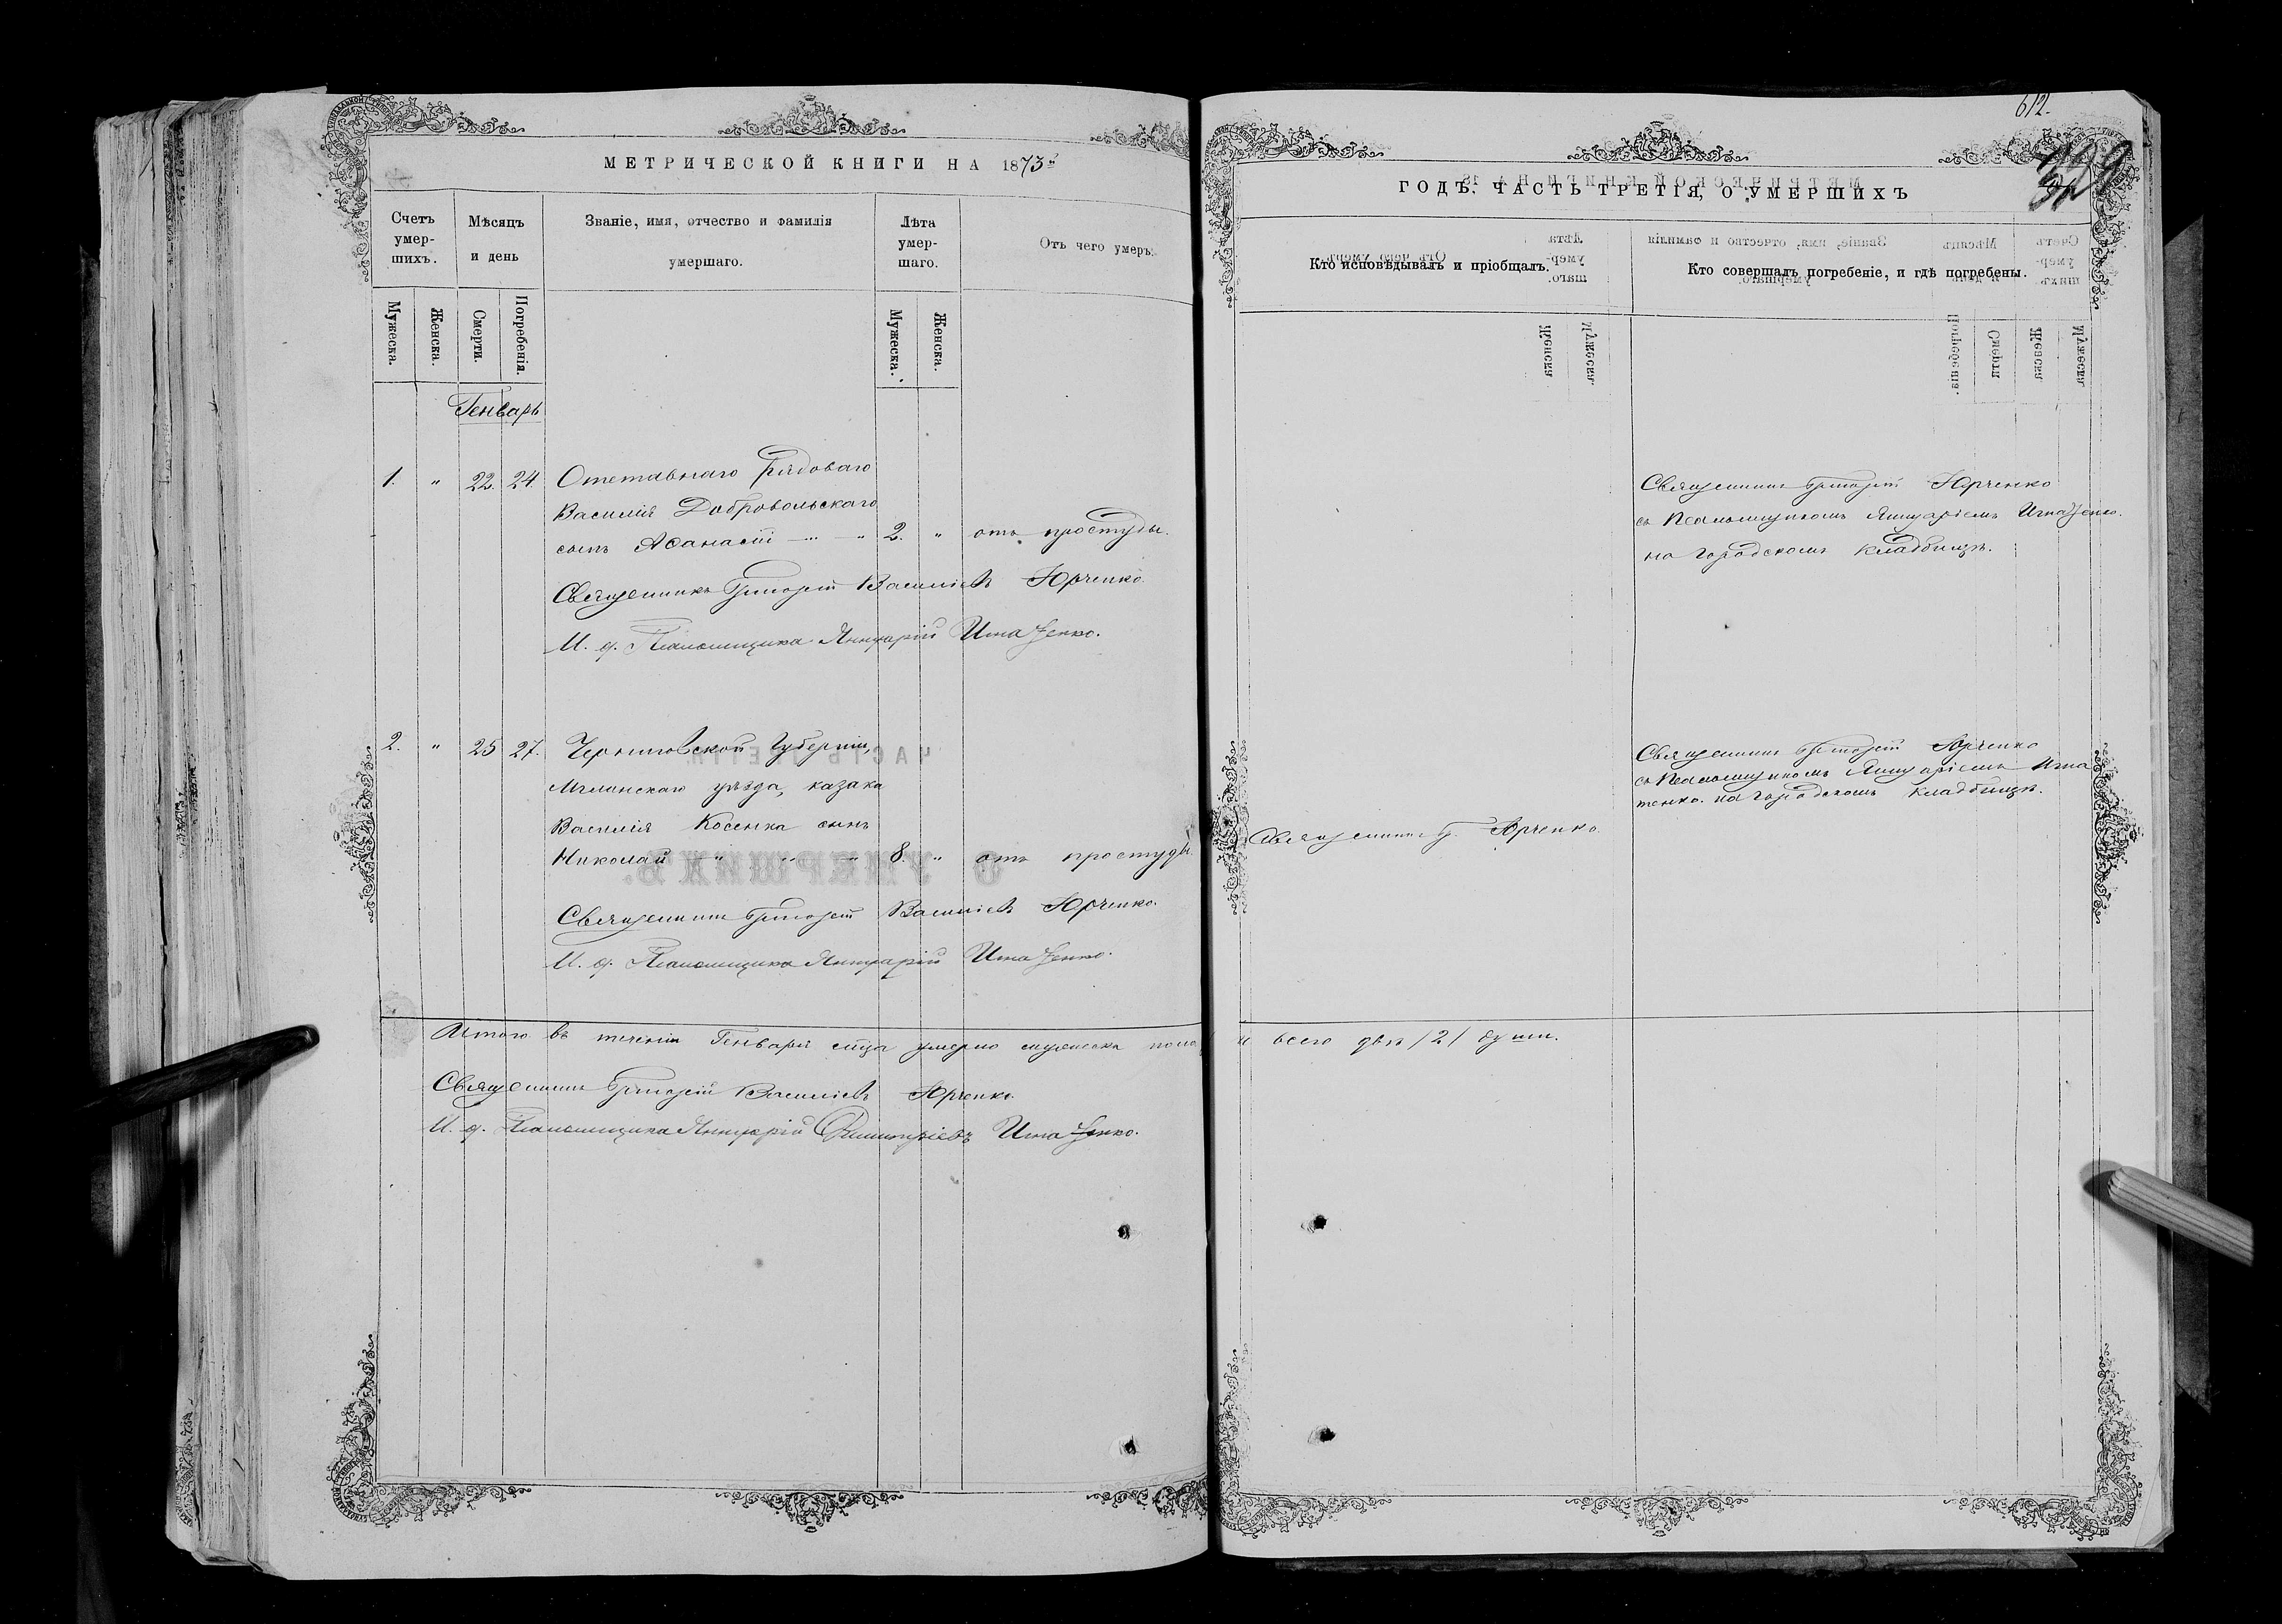 612.
МЕТРИЧЕСКОЙ КНИГИ НА 1873й
ГОДЪ. ЧАСТЬ ТРЕТІЯ, О УМЕРШИХЪ
Счетъ умер-шихъ.
Мѣсяцъ и день
Званіе, имя, отчество и фамилія умершаго.
Лѣта умер-шаго.
Отъ чего умеръ.
Кто исповѣдывалъ и пріобщалъ.
Кто совершалъ погребеніе, и гдѣ погребены.
Мужеска.
Женска.
Смерти.
Погребенія.
Мужеска.
Женска.
Генварь
1. " 22. 24. Отставнаго рядоваго
Василія Добровольскаго
сынъ Афанасій 2. " отъ простуды.
Священникъ Григорій Василіевъ Юрченко.
И. д. Псаломщика Яннуарій Игнатенко.
Священникъ Григорій Юрченко
съ Псаломщикомъ Яннуаріемъ Игнатенко.
на городскомъ кладбищѣ.
2. " 25 27. Черниговской Губерніи,
Мглинскаго уѣзда, казака
Василія Косенка сынъ
Николай " " " 8. " отъ простуды.
Священникъ Григорій Василіевъ Юрченко.
И. д. Псаломщика Яннуарій Игнатенко.
Священникъ Г. Юрченко.
Священникъ Григорій Юрченко
съ Псаломщикомъ Яннуаріемъ Игна
тенко. на городскомъ кладбищѣ.
Итого въ теченіи Генваря м-ца умерло мужеска пола
и всего двѣ /2/ души.
Священникъ Григорій Василіевъ Юрченко.
И. д. Псаломщика Яннуарій Димитріевъ Игнатенко.